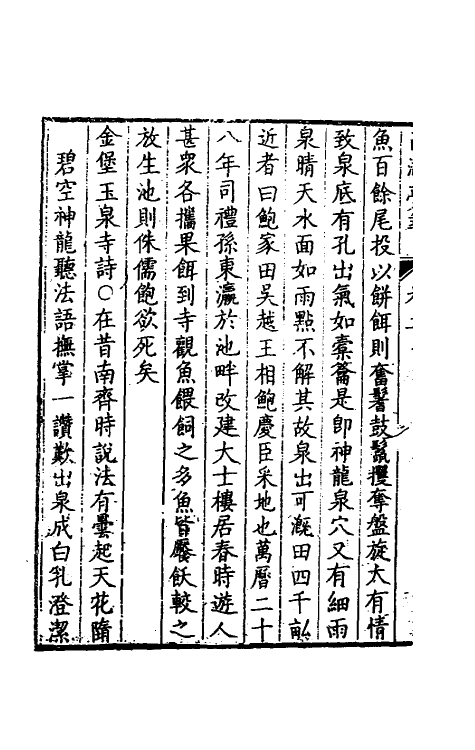 魚百餘尾投以餅餌則奮鬐鼓鬣攫奪盤旋大有情
致泉底有孔出氣如橐籥是卽神龍泉穴又有細雨
泉晴天水面如雨點不解其故泉出可漑田四千畝
近者曰鮑家田吳越王相鮑慶臣采地也萬曆二十
八年司禮孫東瀛於池畔改建大士樓居春時遊人
甚衆各攜果餌到寺觀魚餵飼之多魚皆饜飫較之
放生池則侏儒飽欲死矣
金堡玉泉寺詩〇在昔南齊時說法有曇起天花隨
碧空神龍聽法語撫掌一讚歎出泉成白乳澄潔